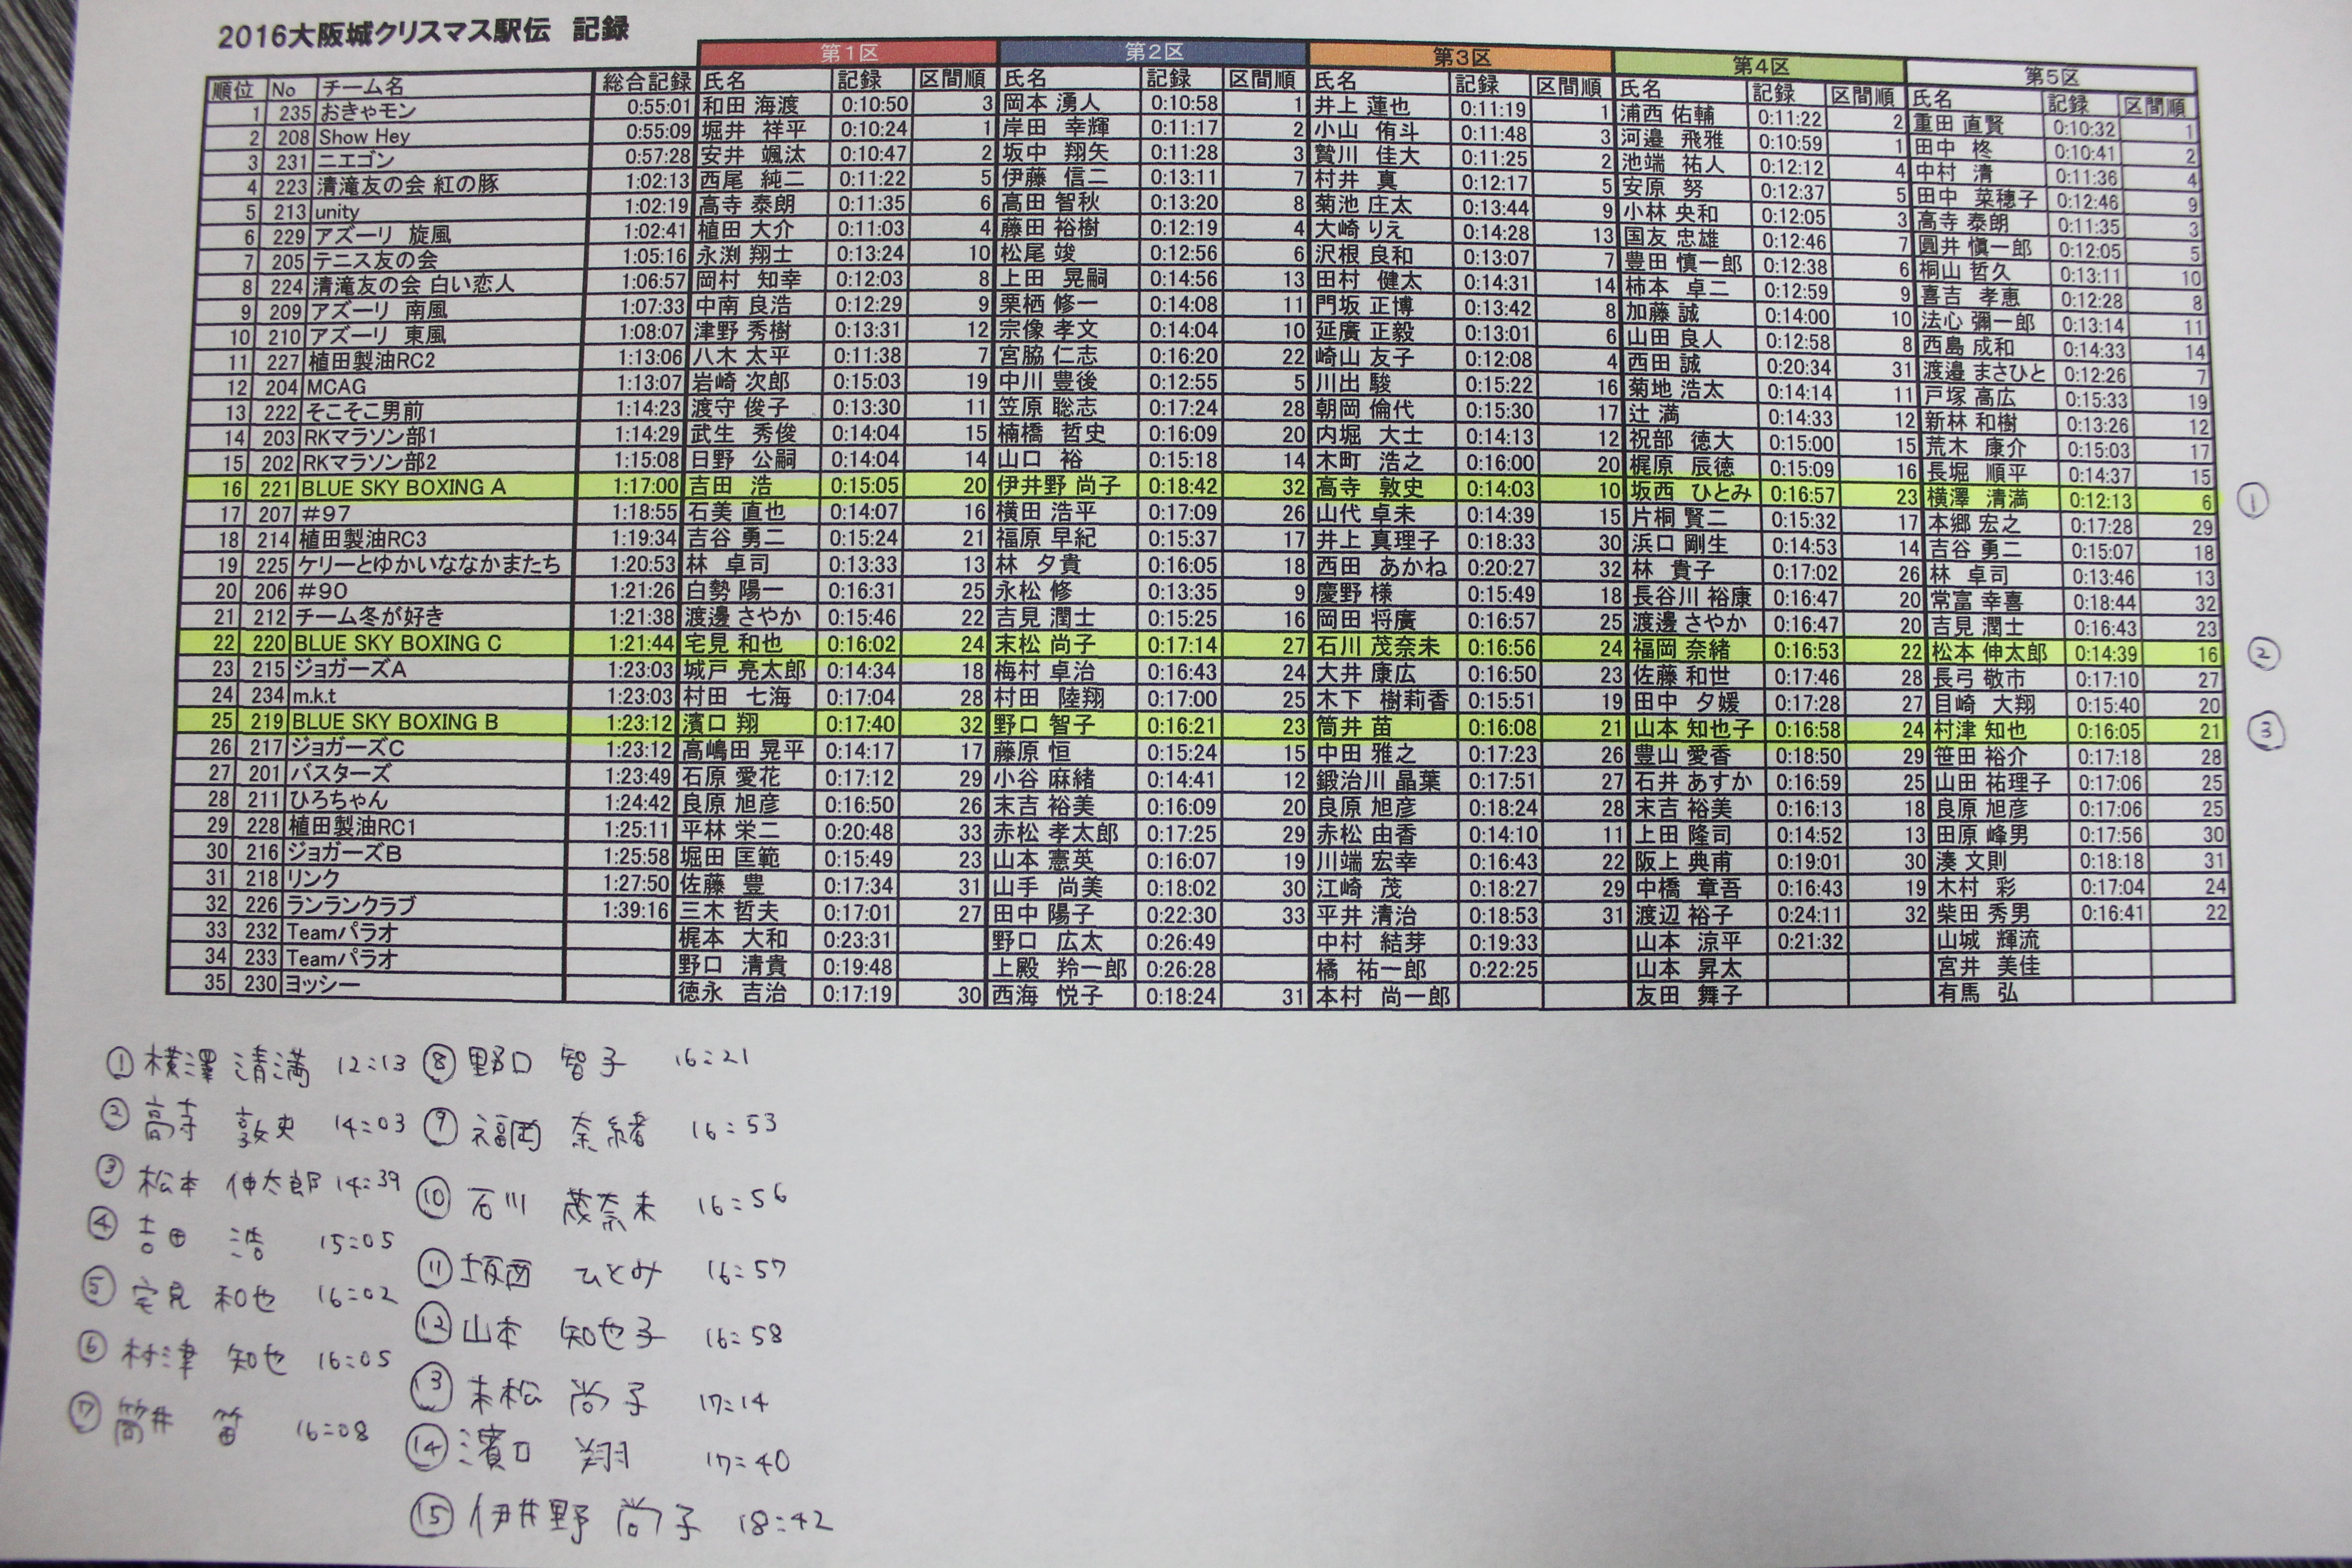 2016大阪城クリスマス駅伝 記録
第1区 第2区 第3区 第4区 第5区
順位 No チーム名 総合記録 氏名 記録 区間順 氏名 記録 区間順 氏名 記録 区間順 氏名 記録 区間順 氏名 記録 区間順
1 235 おきゃモン 0:55:01 和田 海渡 0:10:50 3 岡本 湧人 0:10:58 1 井上 蓮也 0:11:19 1 浦西 佑輔 0:11:22 2 重田 直賢 0:10:32 1
2 208 Show Hey 0:55:09 堀井 祥平 0:10:24 1 岸田 幸輝 0:11:17 2 小山 侑斗 0:11:48 3 河邉 飛雅 0:10:59 1 田中 柊 0:10:41 2
3 231 ニエゴン 0:57:28 安井 颯汰 0:10:47 2 坂中 翔矢 0:11:28 3 贄川 佳大 0:11:25 2 池端 祐人 0:12:12 4 中村 清 0:11:36 4
4 223 清滝友の会 紅の豚 1:02:13 西尾 純二 0:11:22 5 伊藤 信二 0:13:11 7 村井 真 0:12:17 5 安原 努 0:12:37 5 田中 菜穂子 0:12:46 9
5 213 unity 1:02:19 高寺 泰朗 0:11:35 6 高田 智秋 0:13:20 8 菊池 庄太 0:13:44 9 小林 央和 0:12:05 3 高寺 泰朗 0:11:35 3
6 229 アズーリ 旋風 1:02:41 植田 大介 0:11:03 4 藤田 裕樹 0:12:19 4 大崎 りえ 0:14:28 13 国友 忠雄 0:12:46 7 圓井 愼一郎 0:12:05 5
7 205 テニス友の会 1:05:16 永渕 翔士 0:13:24 10 松尾 竣 0:12:56 6 沢根 良和 0:13:07 7 豊田 慎一郎 0:12:38 6 桐山 哲久 0:13:11 10
8 224 清滝友の会 白い恋人 1:06:57 岡村 知幸 0:12:03 8 上田 晃嗣 0:14:56 13 田村 健太 0:14:31 14 柿本 卓二 0:12:59 9 喜吉 孝恵 0:12:28 8
9 209 アズーリ 南風 1:07:33 中南 良浩 0:12:29 9 栗栖 修一 0:14:08 11 門坂 正博 0:13:42 8 加藤 誠 0:14:00 10 法心 彌一郎 0:13:14 11
10 210 アズーリ 東風 1:08:07 津野 秀樹 0:13:31 12 宗像 孝文 0:14:04 10 延廣 正毅 0:13:01 6 山田 良人 0:12:58 8 西島 成和 0:14:33 14
11 227 植田製油RC2 1:13:06 八木 太平 0:11:38 7 宮脇 仁志 0:16:20 22 崎山 友子 0:12:08 4 西田 誠 0:20:34 31 渡邉 まさひと 0:12:26 7
12 204 MCAG 1:13:07 岩崎 次郎 0:15:03 19 中川 豊後 0:12:55 5 川出 駿 0:15:22 16 菊地 浩太 0:14:14 11 戸塚 高広 0:15:33 19
13 222 そこそこ男前 1:14:23 渡守 俊子 0:13:30 11 笠原 聡志 0:17:24 28 朝岡 倫代 0:15:30 17 辻 満 0:14:33 12 新林 和樹 0:13:26 12
14 203 RKマラソン部1 1:14:29 武生 秀俊 0:14:04 15 楠橋 哲史 0:16:09 20 内堀 大士 0:14:13 12 祝部 徳大 0:15:00 15 荒木 康介 0:15:03 17
15 202 RKマラソン部2 1:15:08 日野 公嗣 0:14:04 14 山口 裕 0:15:18 14 木町 浩之 0:16:00 20 梶原 辰徳 0:15:09 16 長堀 順平 0:14:37 15
16 221 BLUE SKY BOXING A 1:17:00 吉田 浩 0:15:05 20 伊井野 尚子 0:18:42 32 高寺 敦史 0:14:03 10 坂西 ひとみ 0:16:57 23 横澤 清満 0:12:13 6 ①
17 207 #97 1:18:55 石美 直也 0:14:07 16 横田 浩平 0:17:09 26 山代 卓未 0:14:39 15 片桐 賢二 0:15:32 17 本郷 宏之 0:17:28 29
18 214 植田製油RC3 1:19:34 吉谷 勇二 0:15:24 21 福原 早紀 0:15:37 17 井上 真理子 0:18:33 30 浜口 剛生 0:14:53 14 吉谷 勇二 0:15:07 18
19 225 ケリーとゆかいななかまたち 1:20:53 林 卓司 0:13:33 13 林 夕貴 0:16:05 18 西田 あかね 0:20:27 32 林 貴子 0:17:02 26 林 卓司 0:13:46 13
20 206 #90 1:21:26 白勢 陽一 0:16:31 25 永松 修 0:13:35 9 慶野 様 0:15:49 18 長谷川 裕康 0:16:47 20 常富 幸喜 0:18:44 32
21 212 チーム冬が好き 1:21:38 渡邊 さやか 0:15:46 22 吉見 潤士 0:15:25 16 岡田 将廣 0:16:57 25 渡邊 さやか 0:16:47 20 吉見 潤士 0:16:43 23
22 220 BLUE SKY BOXING C 1:21:44 宅見 和也 0:16:02 24 末松 尚子 0:17:14 27 石川 茂奈未 0:16:56 24 福岡 奈緒 0:16:53 22 松本 伸太郎 0:14:39 16 ②
23 215 ジョガーズA 1:23:03 城戸 亮太郎 0:14:34 18 梅村 卓治 0:16:43 24 大井 康広 0:16:50 23 佐藤 和世 0:17:46 28 長弓 敬市 0:17:10 27
24 234 m.k.t 1:23:03 村田 七海 0:17:04 28 村田 陸翔 0:17:00 25 木下 樹莉香 0:15:51 19 田中 夕媛 0:17:28 27 目崎 大翔 0:15:40 20
25 219 BLUE SKY BOXING B 1:23:12 濱口 翔 0:17:40 32 野口 智子 0:16:21 23 筒井 苗 0:16:08 21 山本 知也子 0:16:58 24 村津 知也 0:16:05 21 ③
26 217 ジョガーズC 1:23:12 高嶋田 晃平 0:14:17 17 藤原 恒 0:15:24 15 中田 雅之 0:17:23 26 豊山 愛香 0:18:50 29 笹田 裕介 0:17:18 28
27 201 バスターズ 1:23:49 石原 愛花 0:17:12 29 小谷 麻緒 0:14:41 12 鍛治川 晶葉 0:17:51 27 石井 あすか 0:16:59 25 山田 祐理子 0:17:06 25
28 211 ひろちゃん 1:24:42 良原 旭彦 0:16:50 26 末吉 裕美 0:16:09 20 良原 旭彦 0:18:24 28 末吉 裕美 0:16:13 18 良原 旭彦 0:17:06 25
29 228 植田製油RC1 1:25:11 平林 栄二 0:20:48 33 赤松 孝太郎 0:17:25 29 赤松 由香 0:14:10 11 上田 隆司 0:14:52 13 田原 峰男 0:17:56 30
30 216 ジョガーズB 1:25:58 堀田 匡範 0:15:49 23 山本 憲英 0:16:07 19 川端 宏幸 0:16:43 22 阪上 典甫 0:19:01 30 湊 文則 0:18:18 31
31 218 リンク 1:27:50 佐藤 豊 0:17:34 31 山手 尚美 0:18:02 30 江崎 茂 0:18:27 29 中橋 章吾 0:16:43 19 木村 彩 0:17:04 24
32 226 ランランクラブ 1:39:16 三木 哲夫 0:17:01 27 田中 陽子 0:22:30 33 平井 清治 0:18:53 31 渡辺 裕子 0:24:11 32 柴田 秀男 0:16:41 22
33 232 Teamパラオ 梶本 大和 0:23:31 野口 広太 0:26:49 中村 結芽 0:19:33 山本 涼平 0:21:32 山城 輝流
34 233 Teamパラオ 野口 清貴 0:19:48 上殿 羚一郎 0:26:28 橘 祐一郎 0:22:25 山本 昇太 宮井 美佳
35 230 ヨッシー 徳永 吉治 0:17:19 30 西海 悦子 0:18:24 31 本村 尚一郎 友田 舞子 有馬 弘
① 横澤 清満 12:13
② 高寺 敦史 14:03
③ 松本 伸太郎 14:39
④ 吉田 浩 15:05
⑤ 宅見 和也 16:02
⑥ 村津 知也 16:05
⑦ 筒井 苗 16:08
⑧ 野口 智子 16:21
⑨ 福岡 奈緒 16:53
⑩ 石川 茂奈未 16:56
⑪ 坂西 ひとみ 16:57
⑫ 山本 知也子 16:58
⑬ 末松 尚子 17:14
⑭ 濱口 翔 17:40
⑮ 伊井野 尚子 18:42